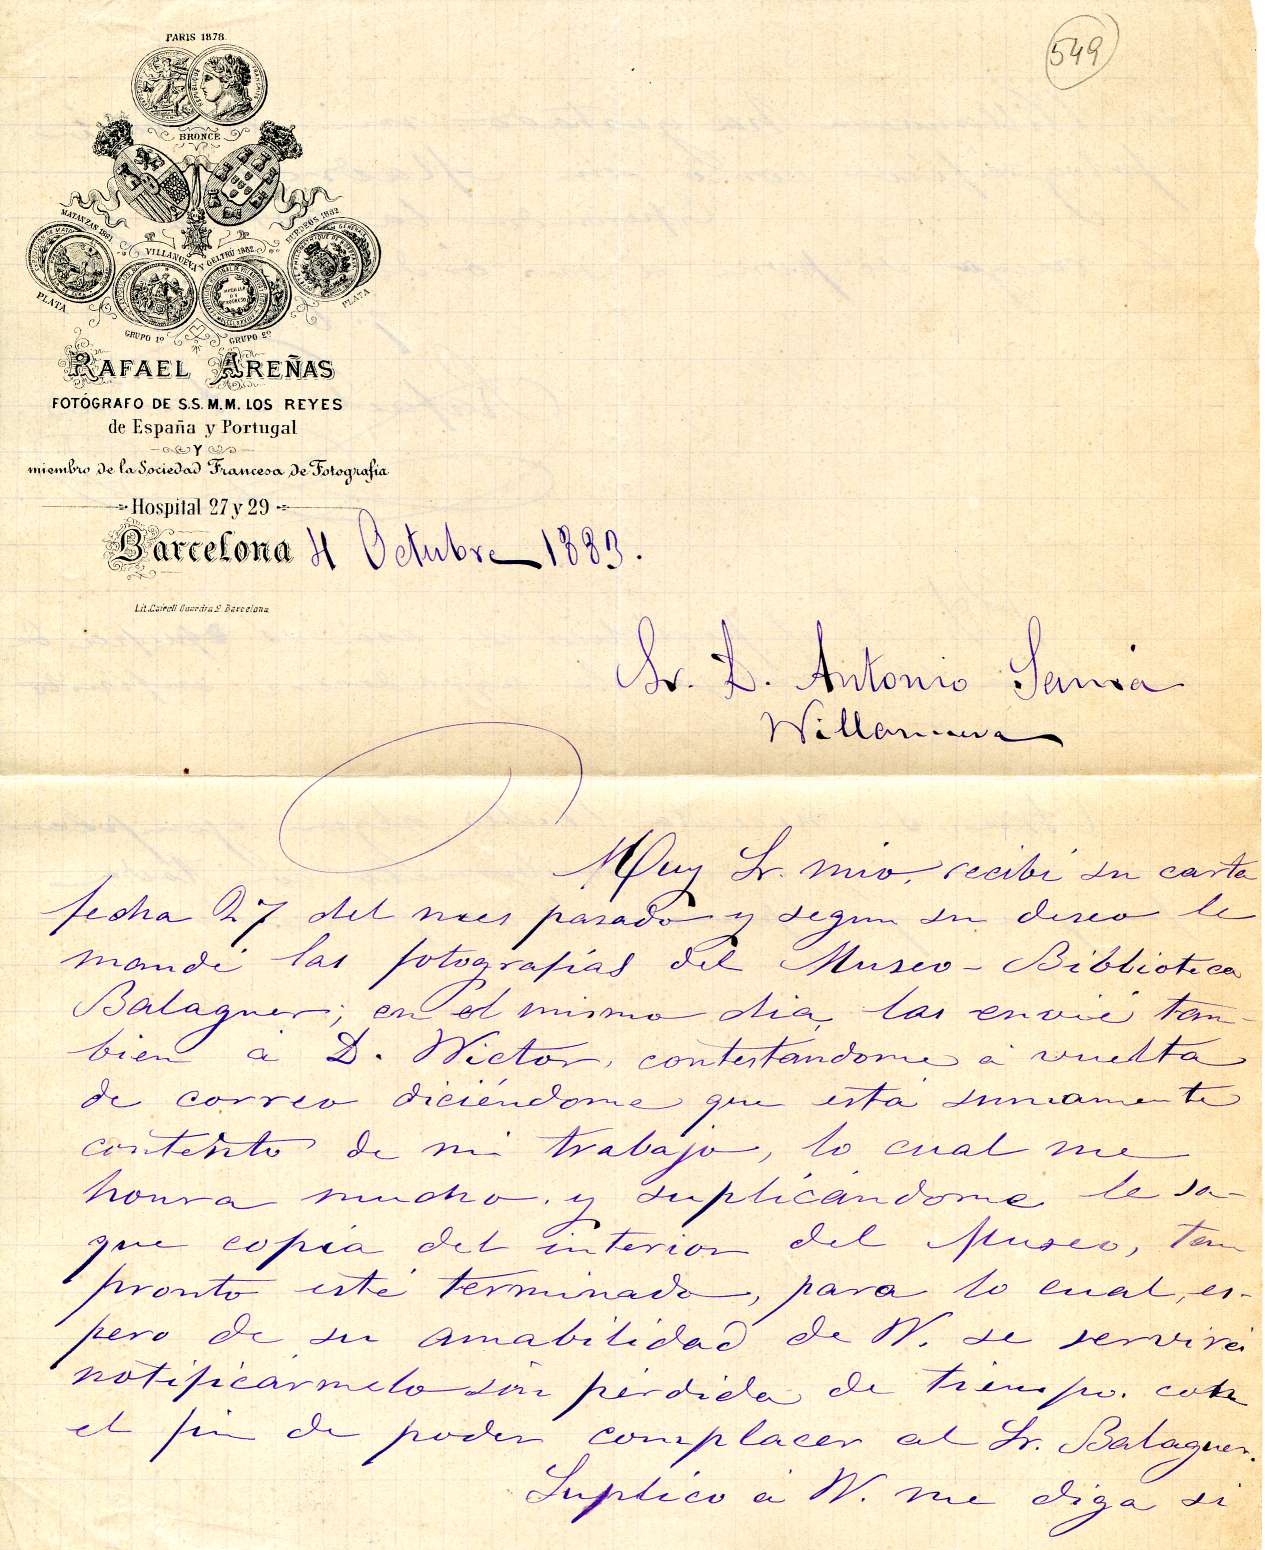 549
PARIS 1878.
BRONCE
MATANZAS 1881
BURDEOS 1882
VILLANUEVA Y GELTRÚ 1882
PLATA
PLATA
GRUPO 1º
GRUPO 2º
RAFAEL AREÑAS
FOTÓGRAFO DE S.S. M.M. LOS REYES
de España y Portugal
Y
miembro de la Sociedad Francesa de Fotografía
Hospital 27 y 29
Barcelona 4 Octubre 1883.
Barcelona
Sr. D. Antonio
Villanueva
Muy Sr. mio, recibí su carta
fecha 27 del mes pasado y segun su deseo le
mandé las fotografías del Museo-Biblioteca
Balaguer; en el mismo dia, las envié tam-
bien á D. Victor, contestándome á vuelta
de correo diciéndome que está sumamente
contento de mi trabajo, lo cual me
honra mucho, y suplicándome le sa-
que copia del interior del Museo, tan
pronto esté terminado, para lo cual, es-
pero de su amabilidad de V. se servirá
notificármelo sin pérdida de tiempo, con
el fin de poder complacer al Sr. Balaguer.
Suplico á V. me diga si